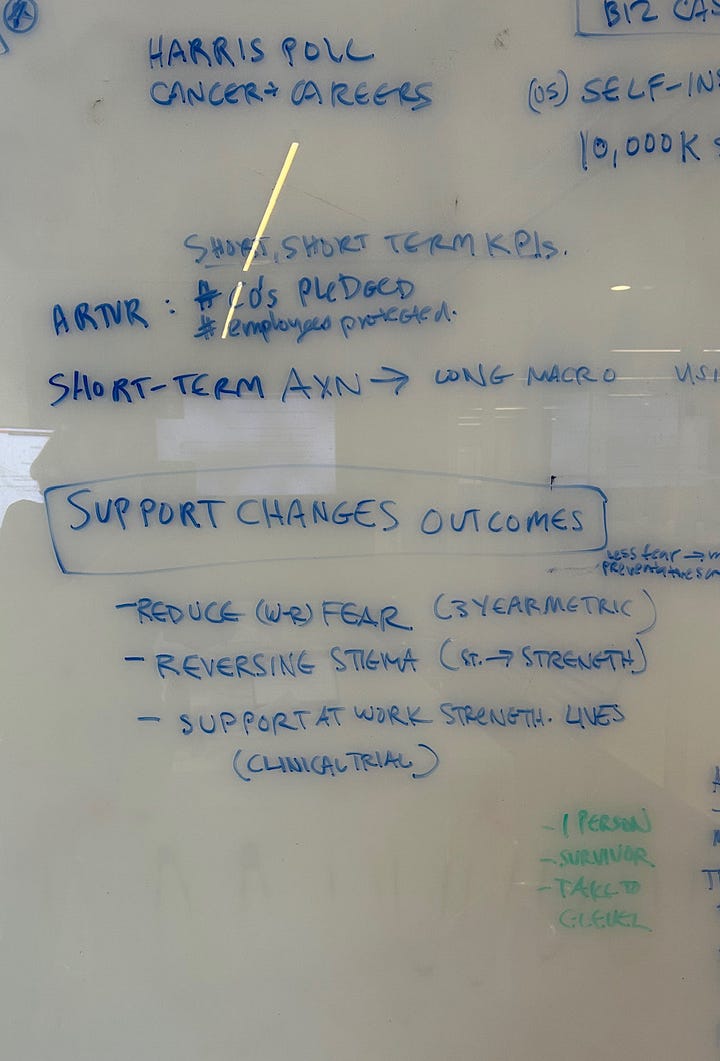 BIZ CAS
HARRIS POLL
CANCER + CAREERS
(OS) SELF-INS
10,000K
SHORT, SHORT TERM KPIs.
ARTUR : # CO'S PLEDGED
# employees protected.
SHORT-TERM AXN → LONG MACRO USI
SUPPORT CHANGES OUTCOMES
less fear →
preventative
-REDUCE (W-R) FEAR (3 YEAR METRIC)
- REVERSING STIGMA (ST. → STRENGTH)
- SUPPORT AT WORK STRENGTH. LIVES
(CLINICAL TRIAL)
- 1 PERSON
- SURVIVOR
- TAKE TO
C-LEVEL